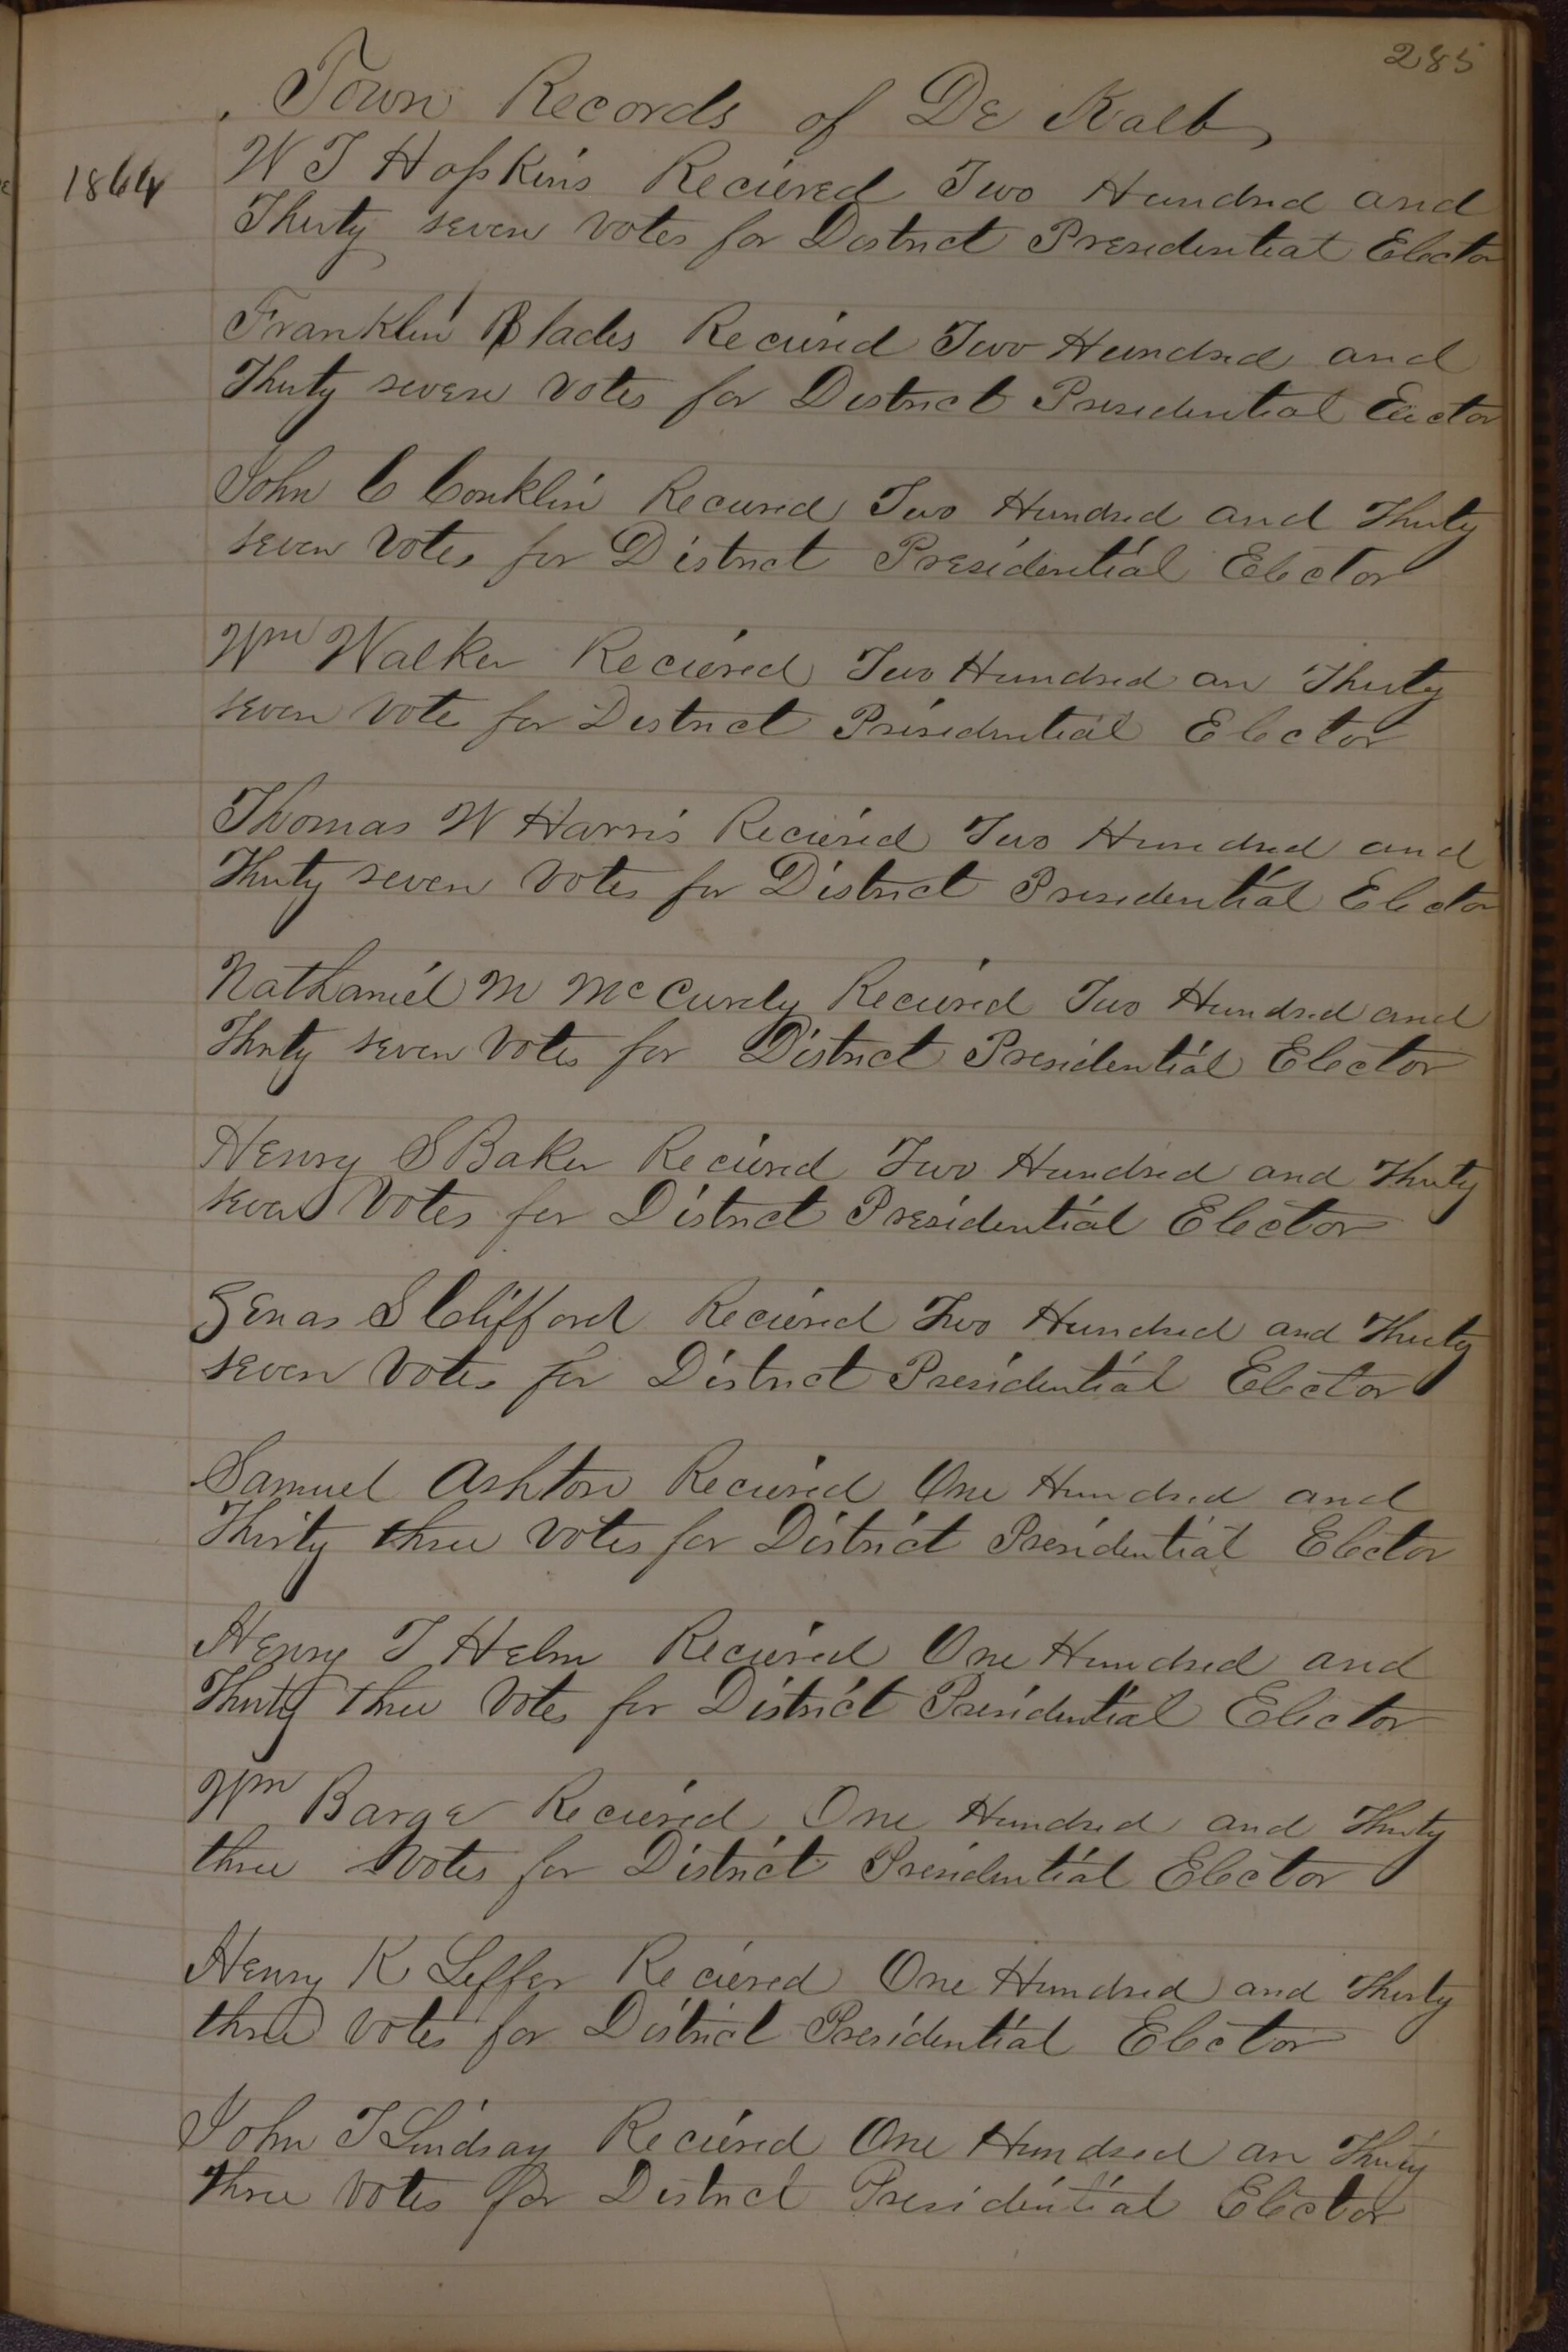 285
Town Records of De Kalb
1864
W T Hopkins Recieved Two Hundred and
Thirty seven votes for District Presidential Elector
Franklin Blades Recieved Two Hundred and
Thirty seven votes for District Presidential Elector
John C Conklin Recieved Two Hundred and Thirty
seven Votes for District Presidential Elector
Wm Walker Recieved Two Hundred an Thirty
seven Vote for District Presidential Elector
Thomas W Harris Recieved Two Hundred and
Thirty seven Votes for District Presidential Elector
Nathaniel M McCurdy Recieved Two Hundred and
Thirty seven Votes for District Presidential Elector
Henry S Baker Recieved Two Hundred and Thirty
seven Votes for District Presidential Elector
Zenas S Clifford Recieved Two Hundred and Thirty
seven Votes for District Presidential Elector
Samuel Ashton Recieved One Hundred and
Thirty three Votes for District Presidential Elector
Henry T Helm Recieved One Hundred and
Thirty three Votes for District Presidential Elector
Wm Barge Recieved One Hundred and Thirty
three Votes for District Presidential Elector
Henry K Leffer Recieved One Hundred and Thirty
three Votes for District Presidential Elector
John T Lindsay Recieved One Hundred an Thirty
three Votes for District Presidential Elector